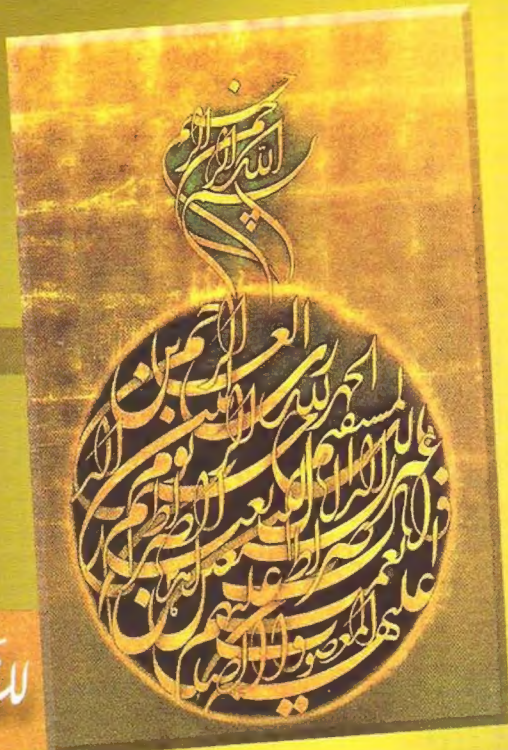 بسم الله الرحمن الرحيم
الحمد لله رب العلمين
الرحمن الرحيم
يوم الدين
نعبد
نستعين
الصراط المستقيم
صراط الذين انعمت عليهم
غير المغضوب عليهم ولا الضالين